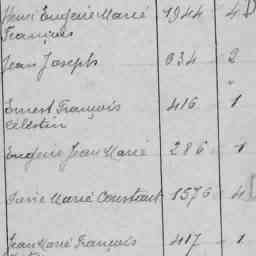 Henri Eugène Marie 1944 4
François
Jean Joseph 634 2
"
Ernest François 416 1
Célestin
Eugène Jean Marie 286 1
Pierre Marie Constant 1576 4
Jean Marie François 417 1